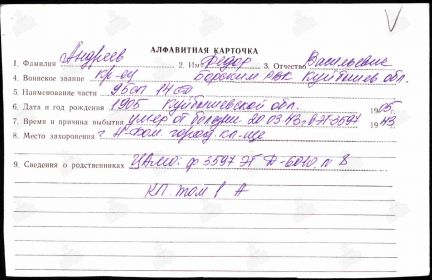 АЛФАВИТНАЯ КАРТОЧКА
1. Фамилия Андреев 2. Имя Федор 3. Отчество Васильевич
4. Воинское звание кр-ец Борским РВК Куйбышев обл.
5. Наименование части 95сп 14сд
6. Дата и год рождения 1905 Куйбышевской обл. 1905
7. Время и причина выбытия умер от болезни 20 03 43г. ЭГ 3597 1943
8. Место захоронения г. кл-ще
9. Сведения о родственниках ЦАМО: ф 3597 ЭГ Д-6010 п 8
КП том 1 А